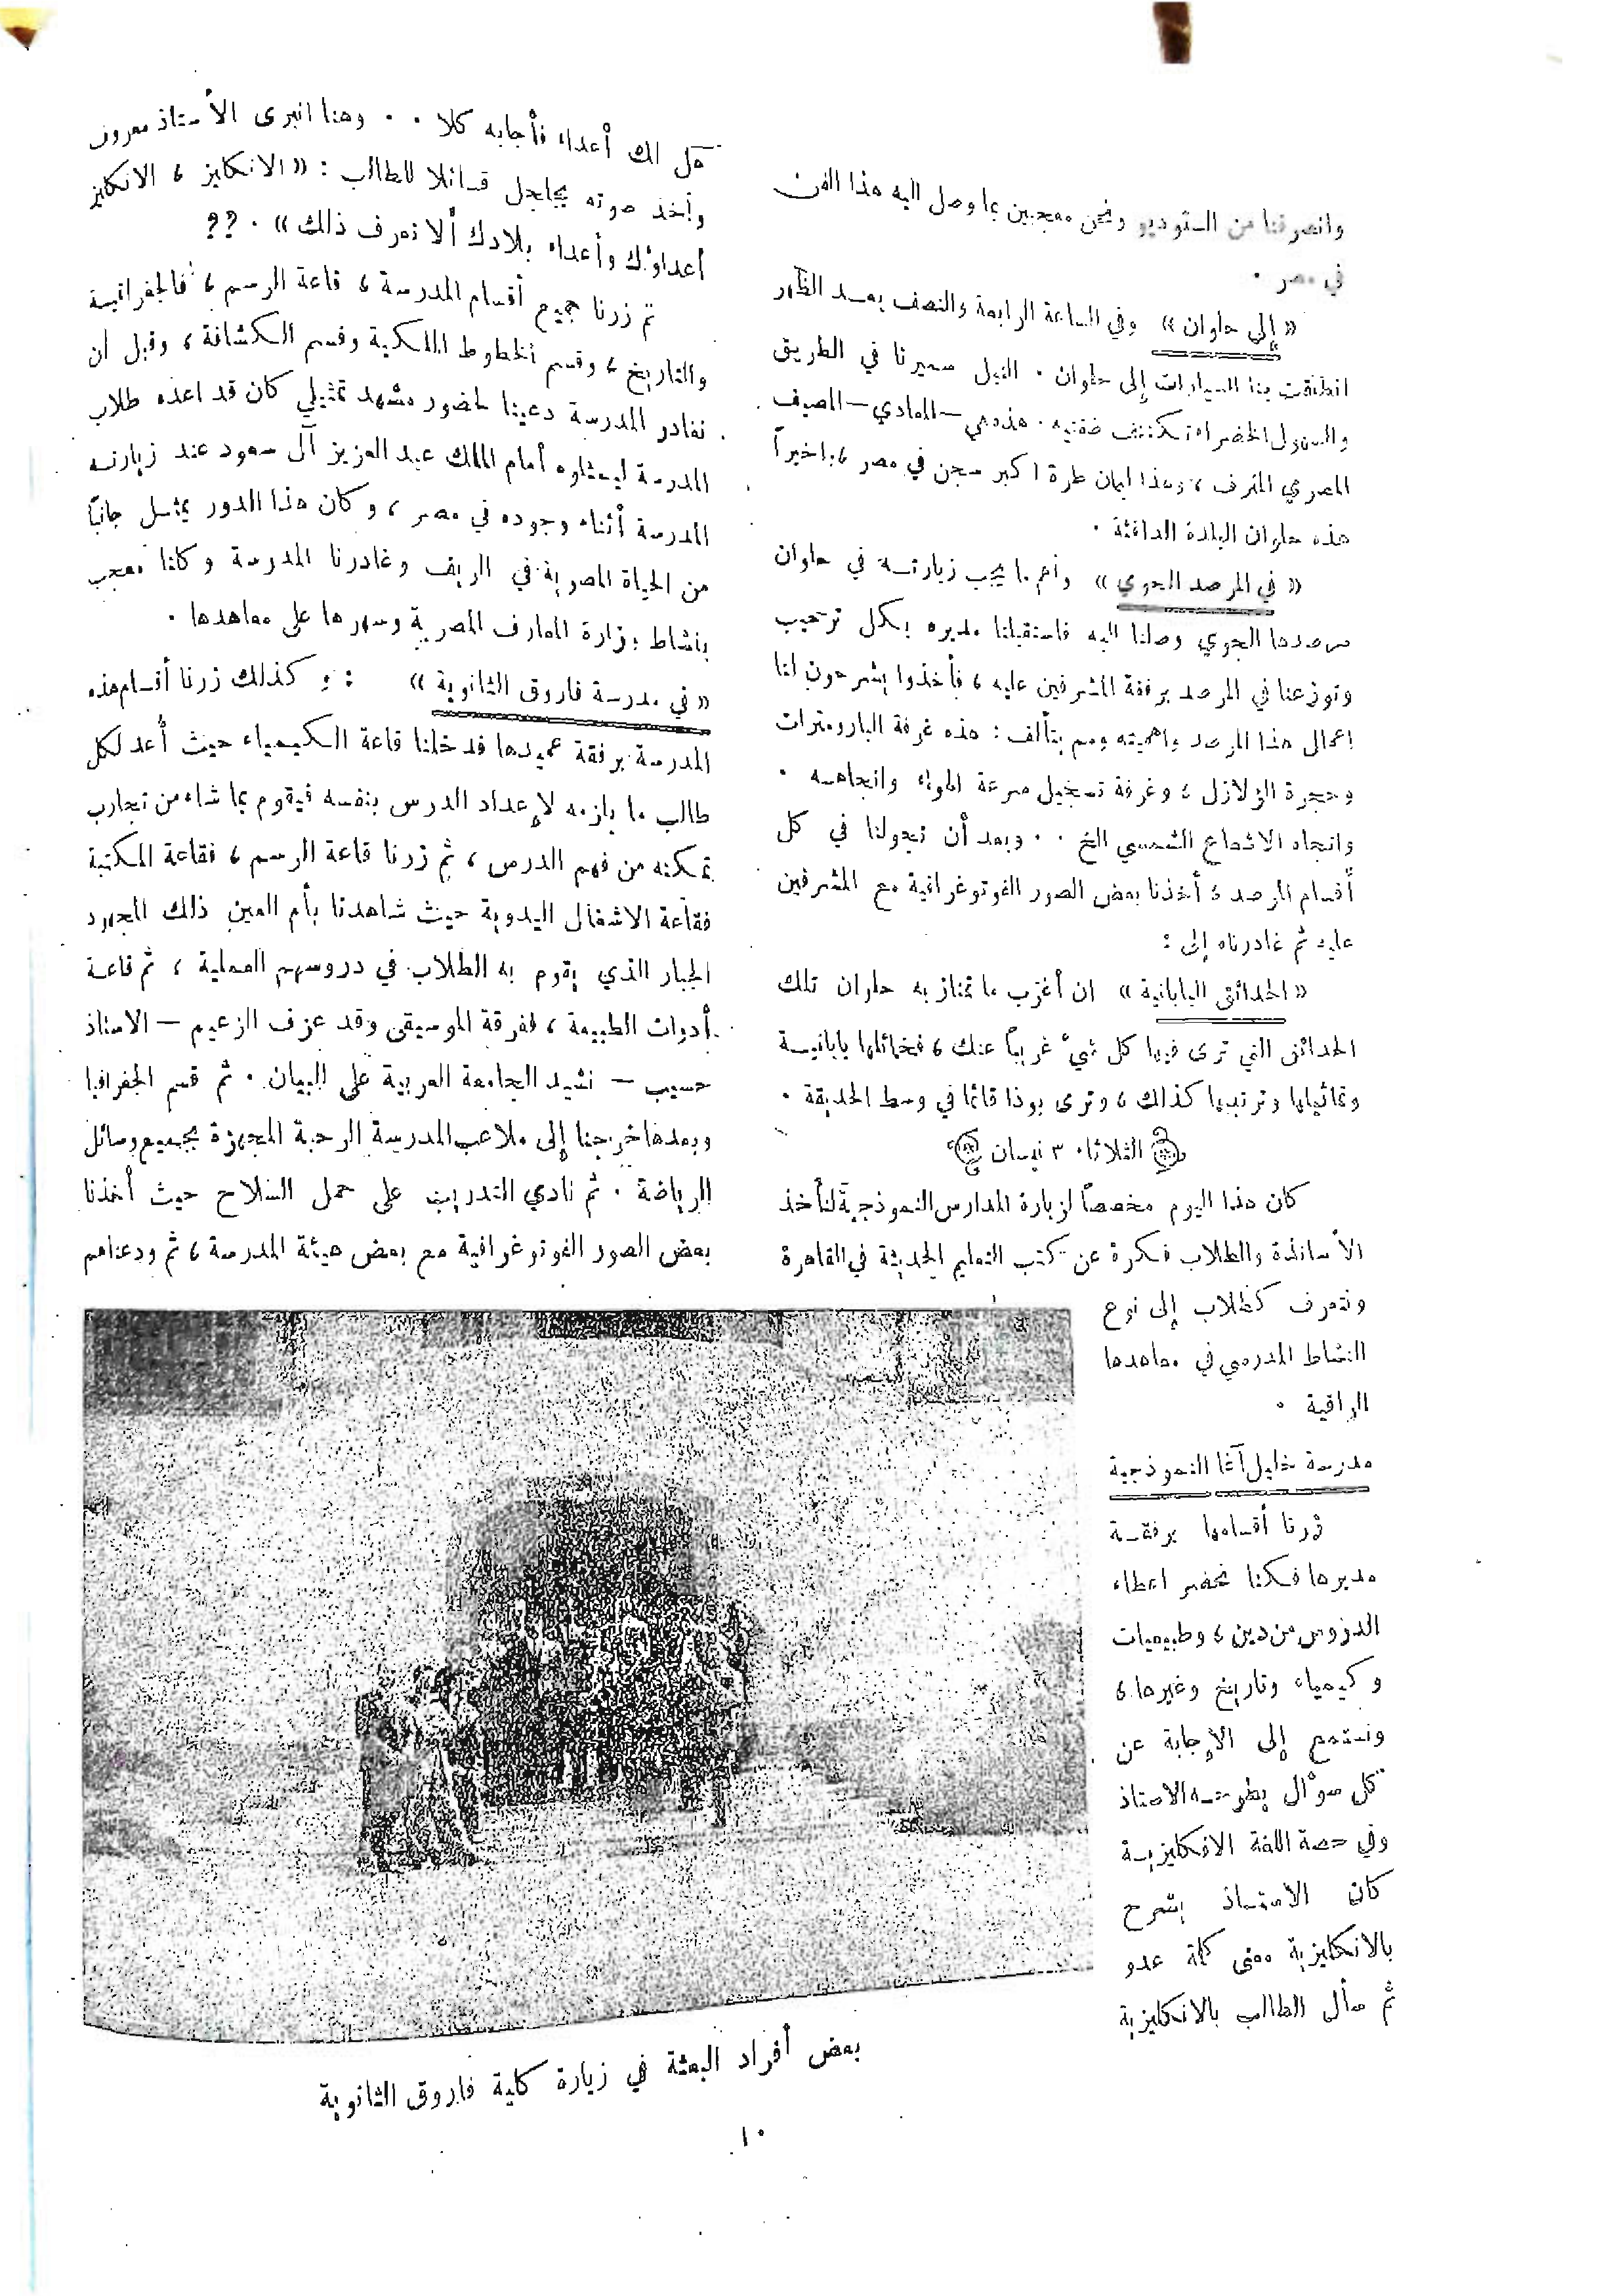 وانصرفنا من الستوديو ونحن معجبين بما وصل اليه هذا الفن
في مصر .
« إلى حلوان » وفي الساعة الرابعة والنصف بعد الظهر
انطلقت بنا السيارات إلى حلوان . النيل سميرنا في الطريق
والسهول الخضراء تكتنف ضفتيه . هذه هي – المعادي – المصيف
المصري المترف ، وهذا ليمان طرة اكبر سجن في مصر ، واخيراً
هذه حلوان البلدة الدافئة .
« في المرصد الجوي » وأهم ما يجب زيارته في حلوان
مرصدها الجوي وصلنا اليه فاستقبلنا مديره بكل ترحيب
وتوزعنا في المرصد برفقة المشرفين عليه ، فأخذوا يشرحون لنا
اعمال هذا المرصد واهميته ومم يتألف : هذه غرفة البارومترات
وحجرة الزلازل ، وغرفة تسجيل سرعة الهواء واتجاهه .
واتجاه الاشعاع الشمسي الخ . . وبعد أن تجولنا في كل
أقسام المرصد ، أخذنا بعض الصور الفوتوغرافية مع المشرفين
عليه ثم غادرناه إلى :
« الحدائق اليابانية » ان أغرب ما تمتاز به حلوان تلك
الحدائق التي ترى فيها كل شيء غريباً عنك ، فخمائلها يابانية
وتماثيلها وترتيبها كذلك ، وترى بوذا قائما في وسط الحديقة .
الثلاثاء ٣ نيسان
كان هذا اليوم مخصصاً لزيارة المدارس النموذجية لنأخذ
الأساتذة والطلاب فكرة عن كتب التعليم الحديثة في القاهرة
ونتعرف كطلاب إلى نوع
النشاط المدرسي في معاهدها
الراقية .
مدرسة خليل آغا النموذجية
زرنا أقسامها برفقة
مديرها فكنا نحضر اعطاء
الدروس من دين ، وطبيعيات
وكيمياء وتاريخ وغيرها ،
ونستمع إلى الإجابة عن
كل سؤال يطرحه الاستاذ
وفي حصة اللغة الانكليزية
كان الاستاذ يشرح
بالانكليزية معنى كلمة عدو
ثم سأل الطالب بالانكليزية
هل لك أعداء فأجابه كلا . . وهنا انبرى الأستاذ معروف
وأخذ صوته يجلجل قائلا للطالب : « الانكليز ، الانكليز
أعداؤك وأعداء بلادك ألا تعرف ذلك » . ؟؟
ثم زرنا جميع أقسام المدرسة ، قاعة الرسم ، فالجغرافية
والتاريخ ، وقسم الخطوط الملكية وقسم الكشافة ، وقبل ان
نغادر المدرسة دعينا لحضور مشهد تمثيلي كان قد اعده طلاب
المدرسة ليمثلوه أمام الملك عبد العزيز آل سعود عند زيارته
المدرسة أثناء وجوده في مصر ، وكان هذا الدور يمثل جانباً
من الحياة المصرية في الريف وغادرنا المدرسة وكلنا معجب
بنشاط وزارة المعارف المصرية وسهرها على معاهدها .
« في مدرسة فاروق الثانوية » : وكذلك زرنا أقسام هذه
المدرسة برفقة عميدها فدخلنا قاعة الكيمياء حيث أعد لكل
طالب ما يلزمه لإعداد الدرس بنفسه فيقوم بما شاء من تجارب
تمكنه من فهم الدرس ، ثم زرنا قاعة الرسم ، فقاعة المكتبة
فقاعة الاشغال اليدوية حيث شاهدنا بأم العين ذلك المجهود
الجبار الذي يقوم به الطلاب في دروسهم العملية ، ثم قاعة
أدوات الطبيعة ، لفرقة الموسيقى وقد عزف الزعيم – الاستاذ
حسيب – نشيد الجامعة العربية على البيان . ثم قسم الجغرافيا
وبعدها خرجنا إلى ملاعب المدرسة الرحبة المجهزة بجميع وسائل
الرياضة . ثم نادي التدريب على حمل السلاح حيث أخذنا
بعض الصور الفوتوغرافية مع بعض هيئة المدرسة ، ثم ودعناهم
بعض أفراد البعثة في زيارة كلية فاروق الثانوية
١٠